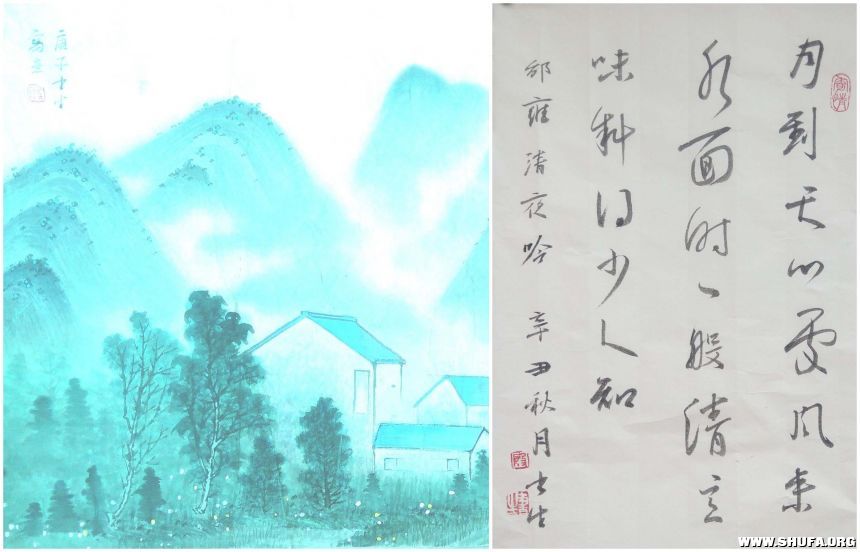 庚子
寫意
月到天心處風来
水面时一般清意
味料得少人知
邵雍清夜吟 辛丑秋月
WWW.SHUFA.ORG